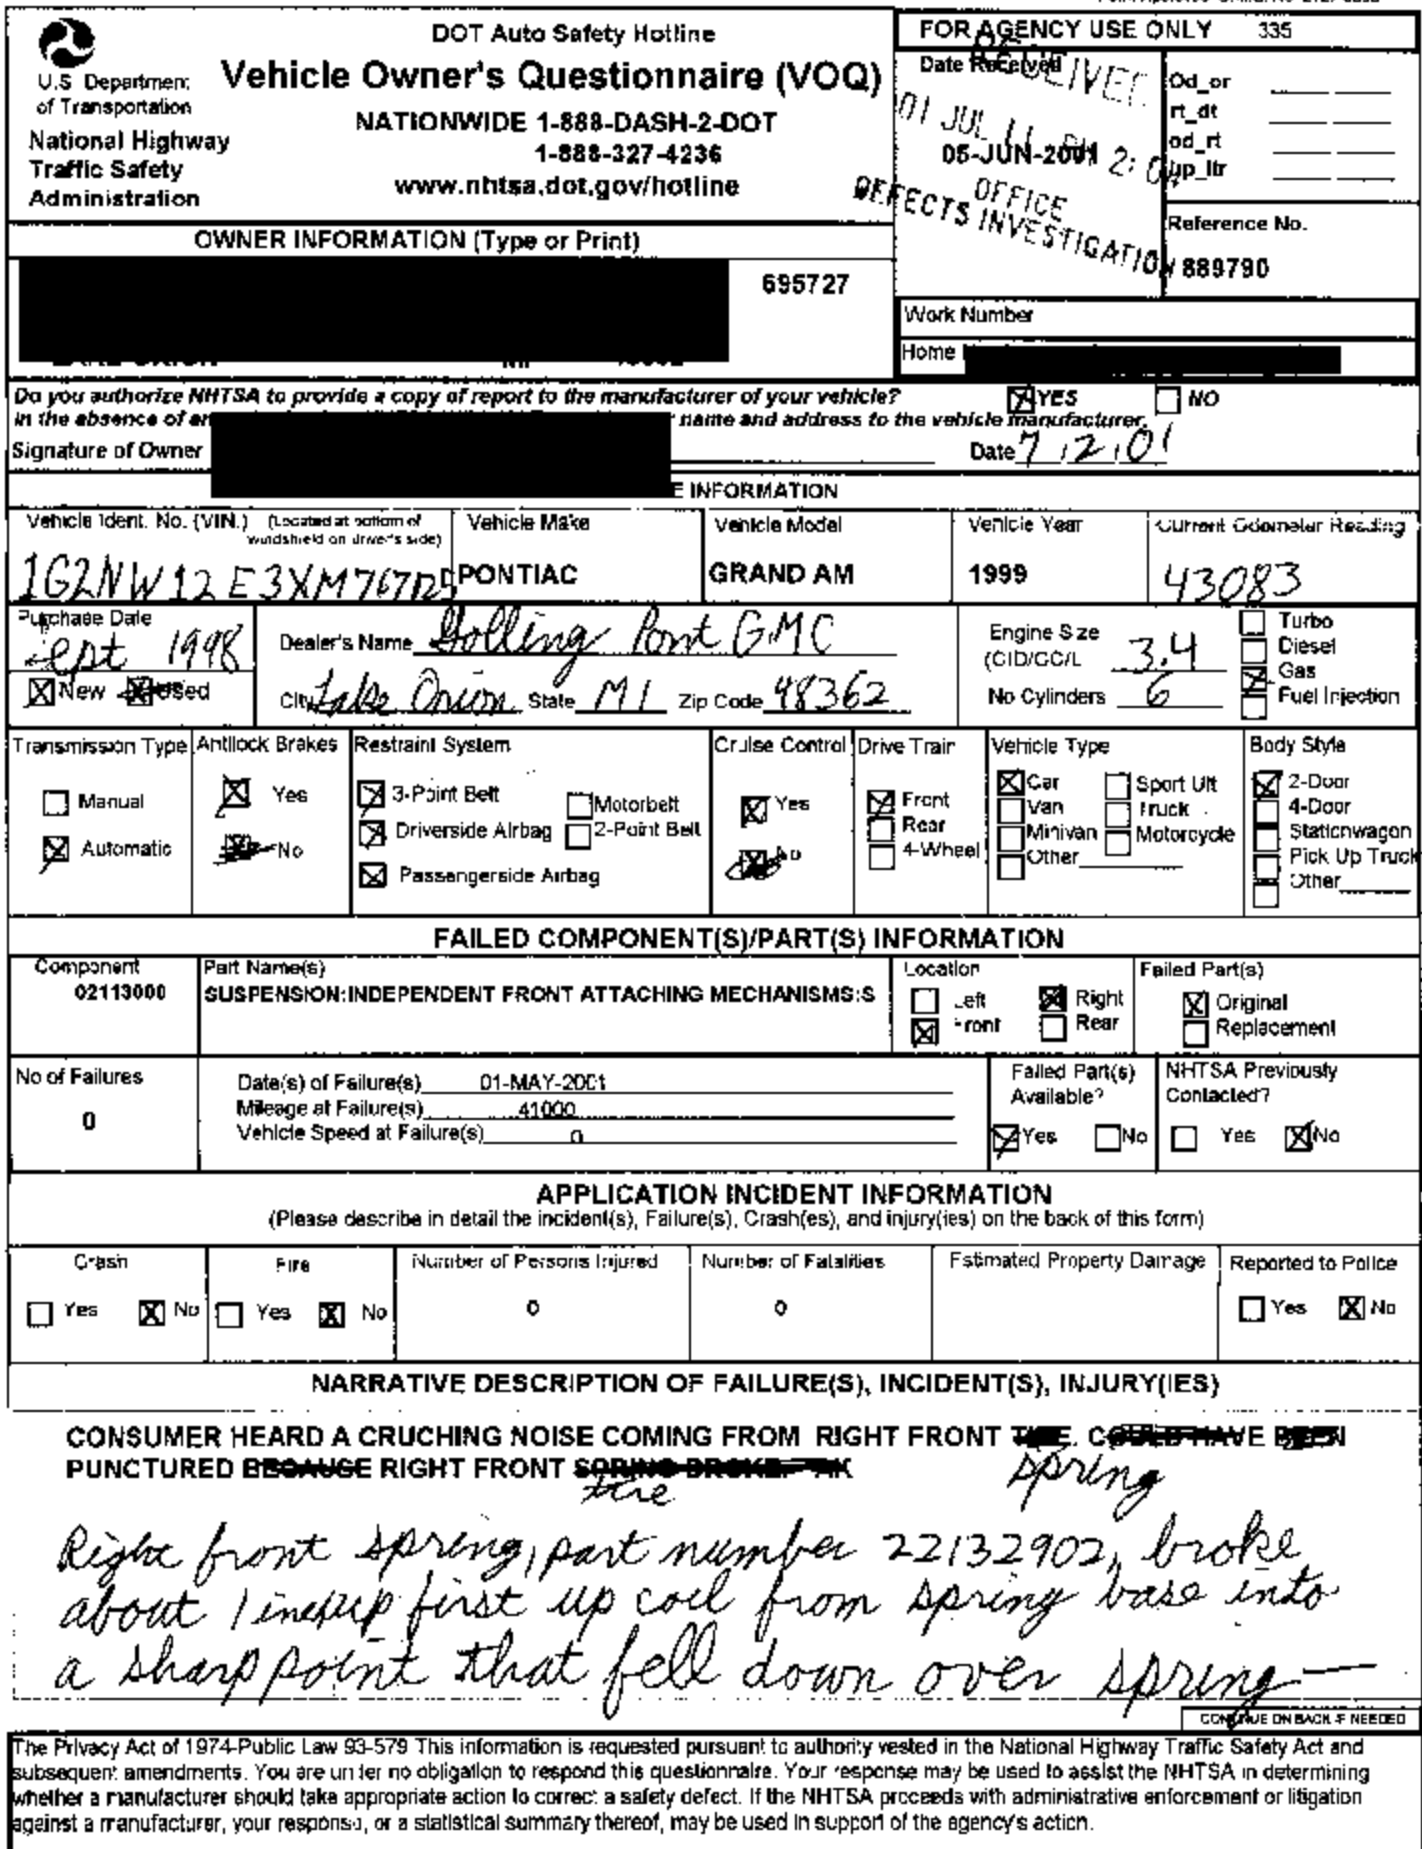 DOT Auto Safety Hotline
Vehicle Owner's Questionnaire (VOQ)
NATIONWIDE 1-888-DASH-2-DOT
1-888-327-4236
www.nhtsa.dot.gov/hotline
U.S. Department
of Transportation
National Highway
Traffic Safety
Administration
FOR AGENCY USE ONLY 335
Date Received
RECEIVED
01 JUL 11 PM 2:0
05-JUN-2001
OFFICE
DEFECTS INVESTIGATION
Od_or
rt_dt
od_rt
up_ltr
Reference No.
889790
OWNER INFORMATION (Type or Print)
695727
Work Number
Home
Do you authorize NHTSA to provide a copy of report to the manufacturer of your vehicle? YES NO
In the absence of an name and address to the vehicle manufacturer.
Signature of Owner Date 7 12 101
E INFORMATION
Vehicle Ident. No. (VIN.) (Located at bottom of
windshield on driver's side)
Vehicle Make Vehicle Model Vehicle Year Current Odometer Reading
PONTIAC GRAND AM 1999 43083
Purchase Date
Sept 1998
New Used
Dealer's Name Golling Pont GMC
City Lake Orion State MI Zip Code 48362
Engine Size
(CID/CC/L 3.4
No Cylinders 6
Turbo
Diesel
Gas
Fuel Injection
Transmission Type Antilock Brakes Restraint System Cruise Control Drive Train Vehicle Type Body Style
Manual
Automatic
Yes
No
3-Point Belt Motorbelt
Driverside Airbag 2-Point Belt
Passengerside Airbag
Yes
No
Front
Rear
4-Wheel
Car Sport Ult
Van Truck
Minivan Motorcycle
Other
2-Door
4-Door
Stationwagon
Pick Up Truck
Other
FAILED COMPONENT(S)/PART(S) INFORMATION
Component
02113000
Part Name(s)
SUSPENSION:INDEPENDENT FRONT ATTACHING MECHANISMS:S
Location
Left Right
Front Rear
Failed Part(s)
Original
Replacement
No of Failures
0
Date(s) of Failure(s) 01-MAY-2001
Mileage at Failure(s) 41000
Vehicle Speed at Failure(s) 0
Failed Part(s)
Available?
Yes No
NHTSA Previously
Contacted?
Yes No
APPLICATION INCIDENT INFORMATION
(Please describe in detail the incident(s), Failure(s), Crash(es), and injury(ies) on the back of this form)
Crash Fire Number of Persons Injured Number of Fatalities Estimated Property Damage Reported to Police
Yes No Yes No 0 0 Yes No
NARRATIVE DESCRIPTION OF FAILURE(S), INCIDENT(S), INJURY(IES)
CONSUMER HEARD A CRUCHING NOISE COMING FROM RIGHT FRONT TIRE. COULD HAVE BEEN
PUNCTURED BECAUSE RIGHT FRONT SPRING BROKE. *AK
tire spring
Right front spring, part number 22132902, broke
about 1 inch up first up coil from spring base into
a sharp point that fell down over spring—
CONTINUE ON BACK IF NEEDED
The Privacy Act of 1974-Public Law 93-579 This information is requested pursuant to authority vested in the National Highway Traffic Safety Act and
subsequent amendments. You are under no obligation to respond this questionnaire. Your response may be used to assist the NHTSA in determining
whether a manufacturer should take appropriate action to correct a safety defect. If the NHTSA proceeds with administrative enforcement or litigation
against a manufacturer, your response, or a statistical summary thereof, may be used in support of the agency's action.